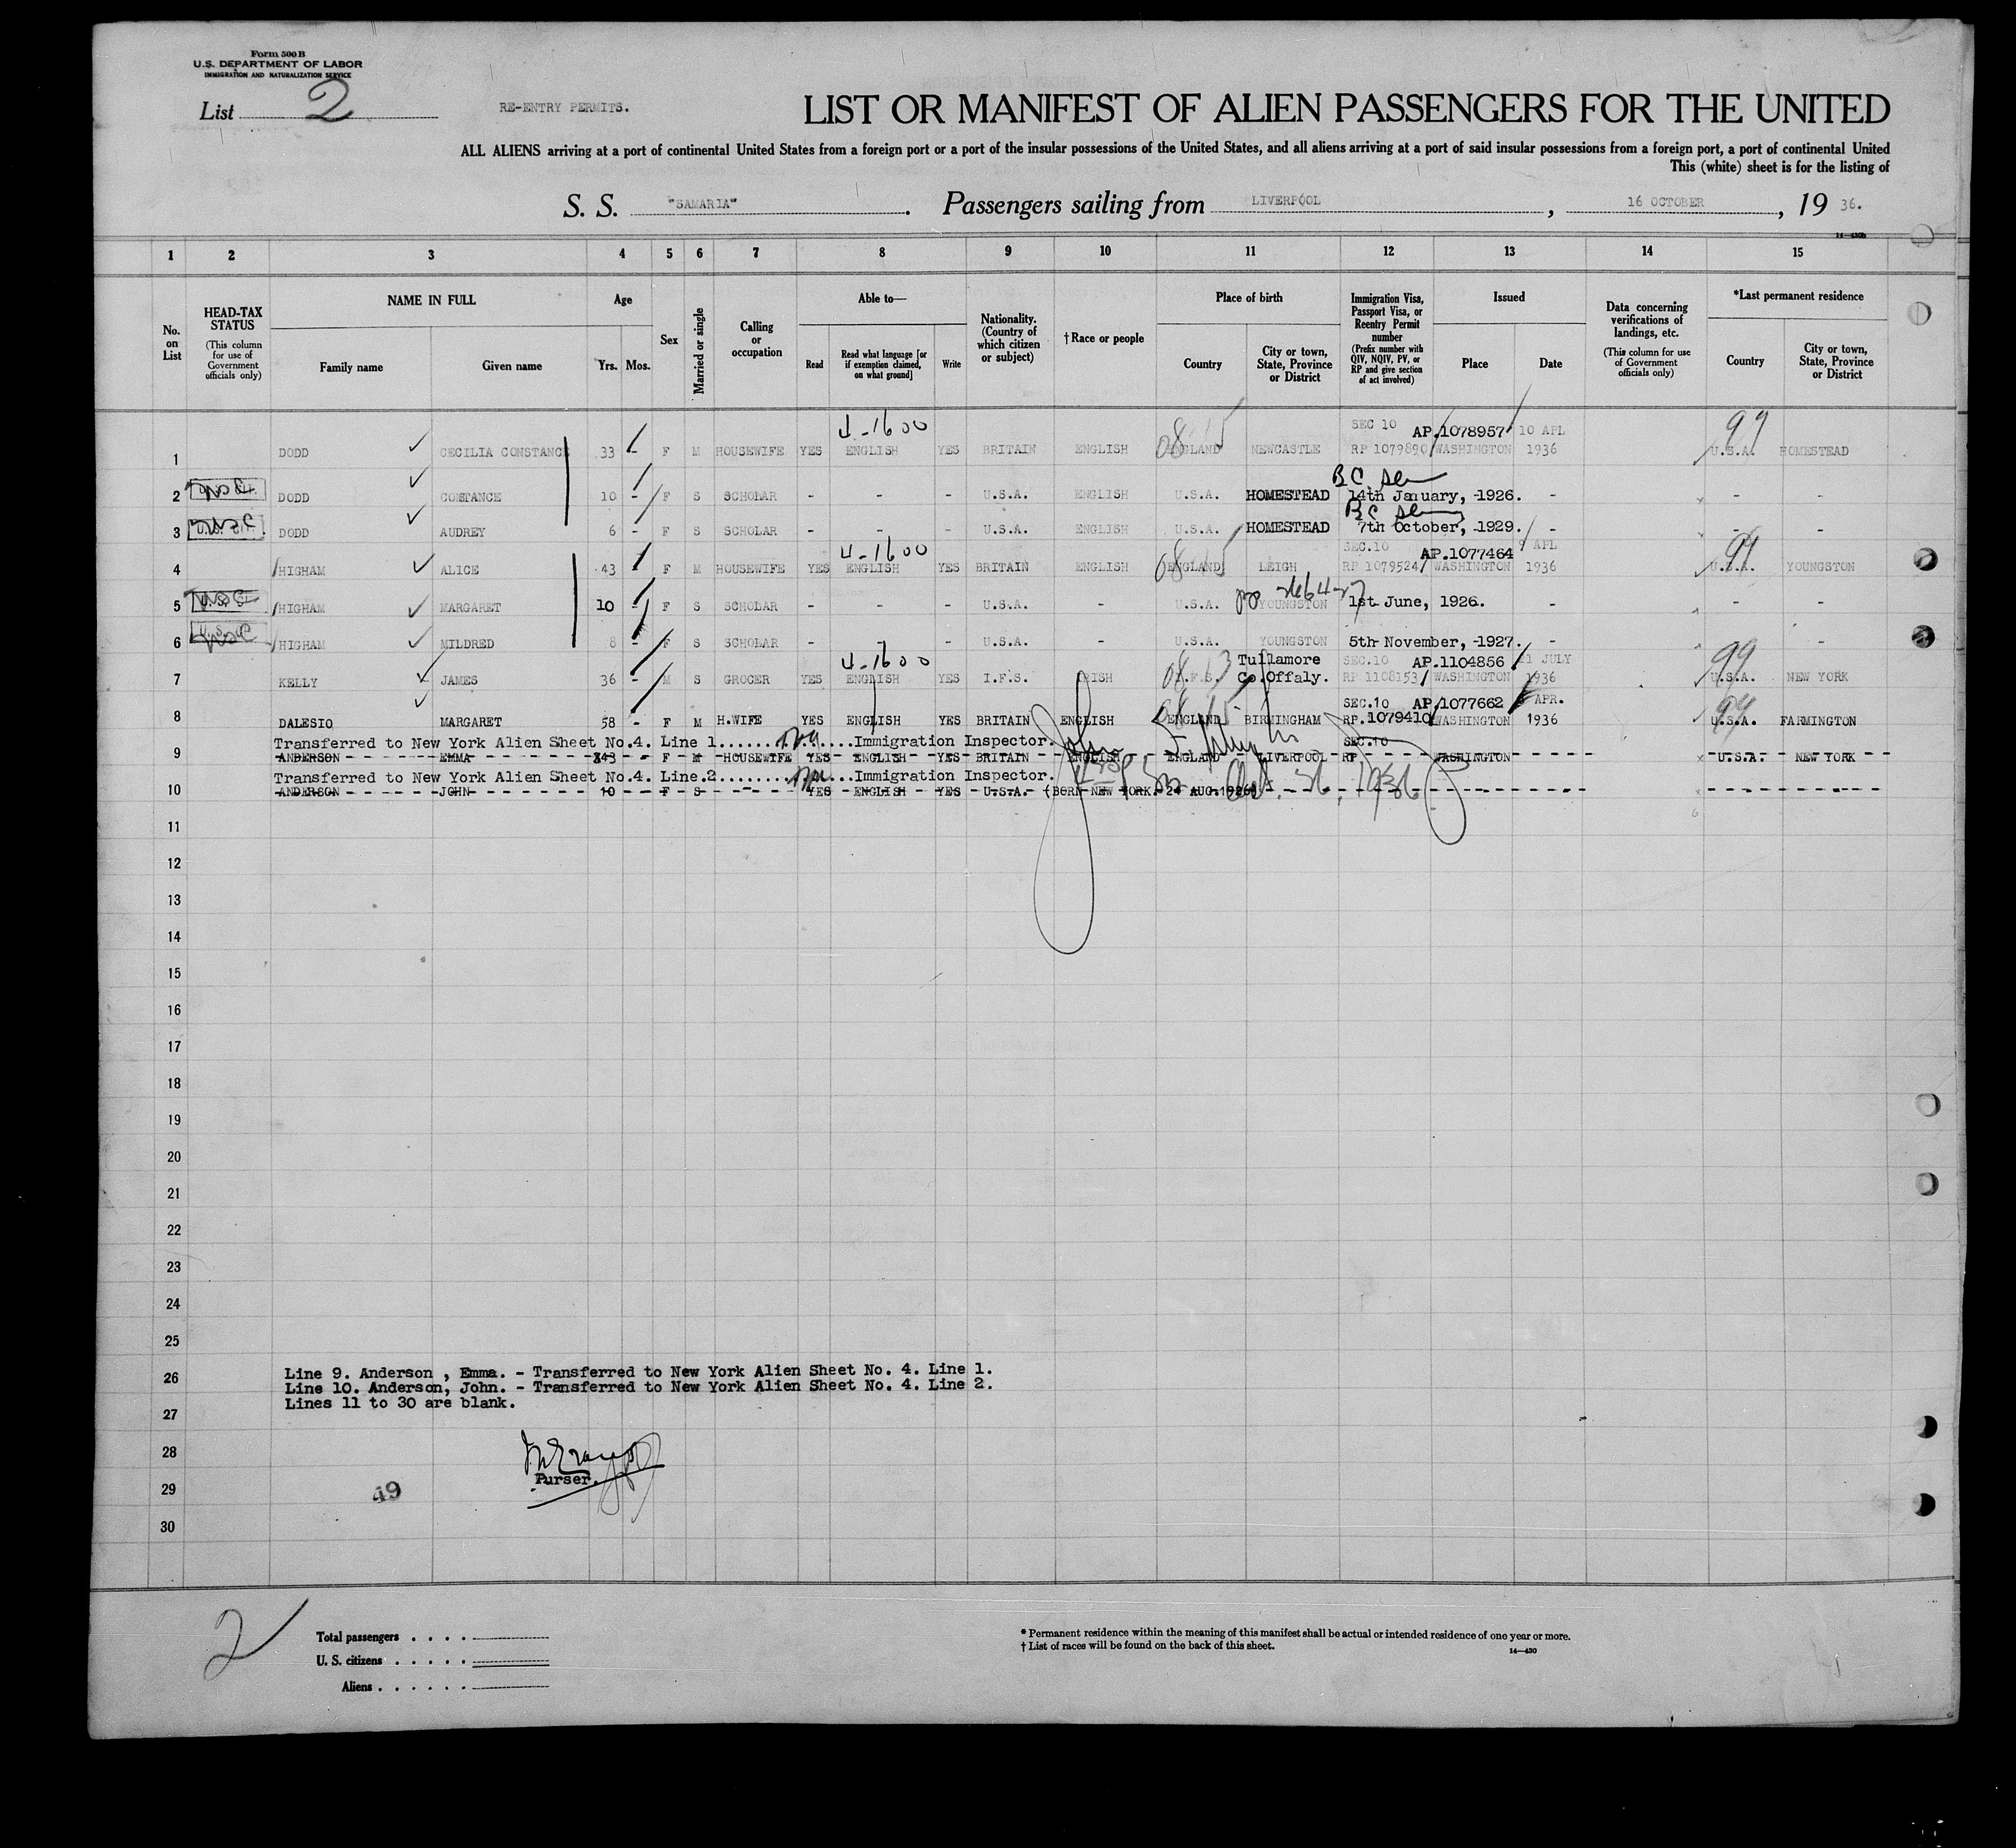 Form 500 B
U.S. DEPARTMENT OF LABOR
IMMIGRATION AND NATURALIZATION SERVICE
List 2
RE-ENTRY PERMITS.
LIST OR MANIFEST OF ALIEN PASSENGERS FOR THE UNITED
ALL ALIENS arriving at a port of continental United States from a foreign port or a port of the insular possessions of the United States, and all aliens arriving at a port of said insular possessions from a foreign port, a port of continental United
This (white) sheet is for the listing of
S. S. "SAMARIA". Passengers sailing from LIVERPOOL, 16 OCTOBER, 19 36.
1 2 3 4 5 6 7 8 9 10 11 12 13 14 15
No. on List
HEAD-TAX STATUS
(This column for use of Government officials only)
NAME IN FULL
Family name Given name
Age
Yrs. Mos.
Sex
Married or single
Calling or occupation
Able to—
Read
Read what language [or if exemption claimed, on what ground]
Write
Nationality. (Country of which citizen or subject)
† Race or people
Place of birth
Country
City or town, State, Province or District
Immigration Visa, Passport Visa, or Reentry Permit number
(Prefix number with QIV, NQIV, PV, or RP and give section of act involved)
Issued
Place Date
Data concerning verifications of landings, etc.
(This column for use of Government officials only)
*Last permanent residence
Country
City or town, State, Province or District
4-1600 SEC 10 AP.1078957 10 APL 99
1 DODD CECILIA CONSTANCE 33 - F M HOUSEWIFE YES ENGLISH YES BRITAIN ENGLISH ENGLAND NEWCASTLE RP 1079890 WASHINGTON 1936 U.S.A. HOMESTEAD
2 DODD CONSTANCE 10 - F S SCHOLAR - - - U.S.A. ENGLISH U.S.A. HOMESTEAD 14th January, -1926. - - -
3 DODD AUDREY 6 - F S SCHOLAR - - - U.S.A. ENGLISH U.S.A. HOMESTEAD 7th October, -1929. - - -
4-1600 SEC.10 AP.1077464 APL 99
4 HIGHAM ALICE 43 - F M HOUSEWIFE YES ENGLISH YES BRITAIN ENGLISH ENGLAND LEIGH RP 1079524 WASHINGTON 1936 U.S.A. YOUNGSTON
5 HIGHAM MARGARET 10 - F S SCHOLAR - - - U.S.A. - U.S.A. YOUNGSTON 1st June, 1926. - - -
6 HIGHAM MILDRED 8 - F S SCHOLAR - - - U.S.A. - U.S.A. YOUNGSTON 5th November, -1927. - - -
4-1600 Tullamore SEC.10 AP.1104856 21 JULY 99
7 KELLY JAMES 36 - M S GROCER YES ENGLISH YES I.F.S. IRISH I.F.S. Co.Offaly. RP 1108153 WASHINGTON 1936 U.S.A. NEW YORK
SEC.10 AP.1077662 APR. 99
8 DALESIO MARGARET 58 - F M H.WIFE YES ENGLISH YES BRITAIN ENGLISH ENGLAND BIRMINGHAM RP.1079410 WASHINGTON 1936 U.S.A. FARMINGTON
Transferred to New York Alien Sheet No.4. Line 1. Immigration Inspector. SEC.10
9 ANDERSON EMMA 43 - F M HOUSEWIFE YES ENGLISH YES BRITAIN ENGLISH ENGLAND LIVERPOOL RP WASHINGTON U.S.A. NEW YORK
Transferred to New York Alien Sheet No.4. Line.2. Immigration Inspector.
10 ANDERSON JOHN 10 F S YES ENGLISH YES U.S.A. (BORN NEW YORK. 24 AUG.1926)
11
12
13
14
15
16
17
18
19
20
21
22
23
24
25
26
27
28
29
30
Line 9. Anderson , Emma. - Transferred to New York Alien Sheet No. 4. Line 1.
Line 10. Anderson, John. - Transferred to New York Alien Sheet No. 4. Line 2.
Lines 11 to 30 are blank.
Purser.
49
2
Total passengers
U. S. citizens
Aliens
* Permanent residence within the meaning of this manifest shall be actual or intended residence of one year or more.
† List of races will be found on the back of this sheet.
14—430